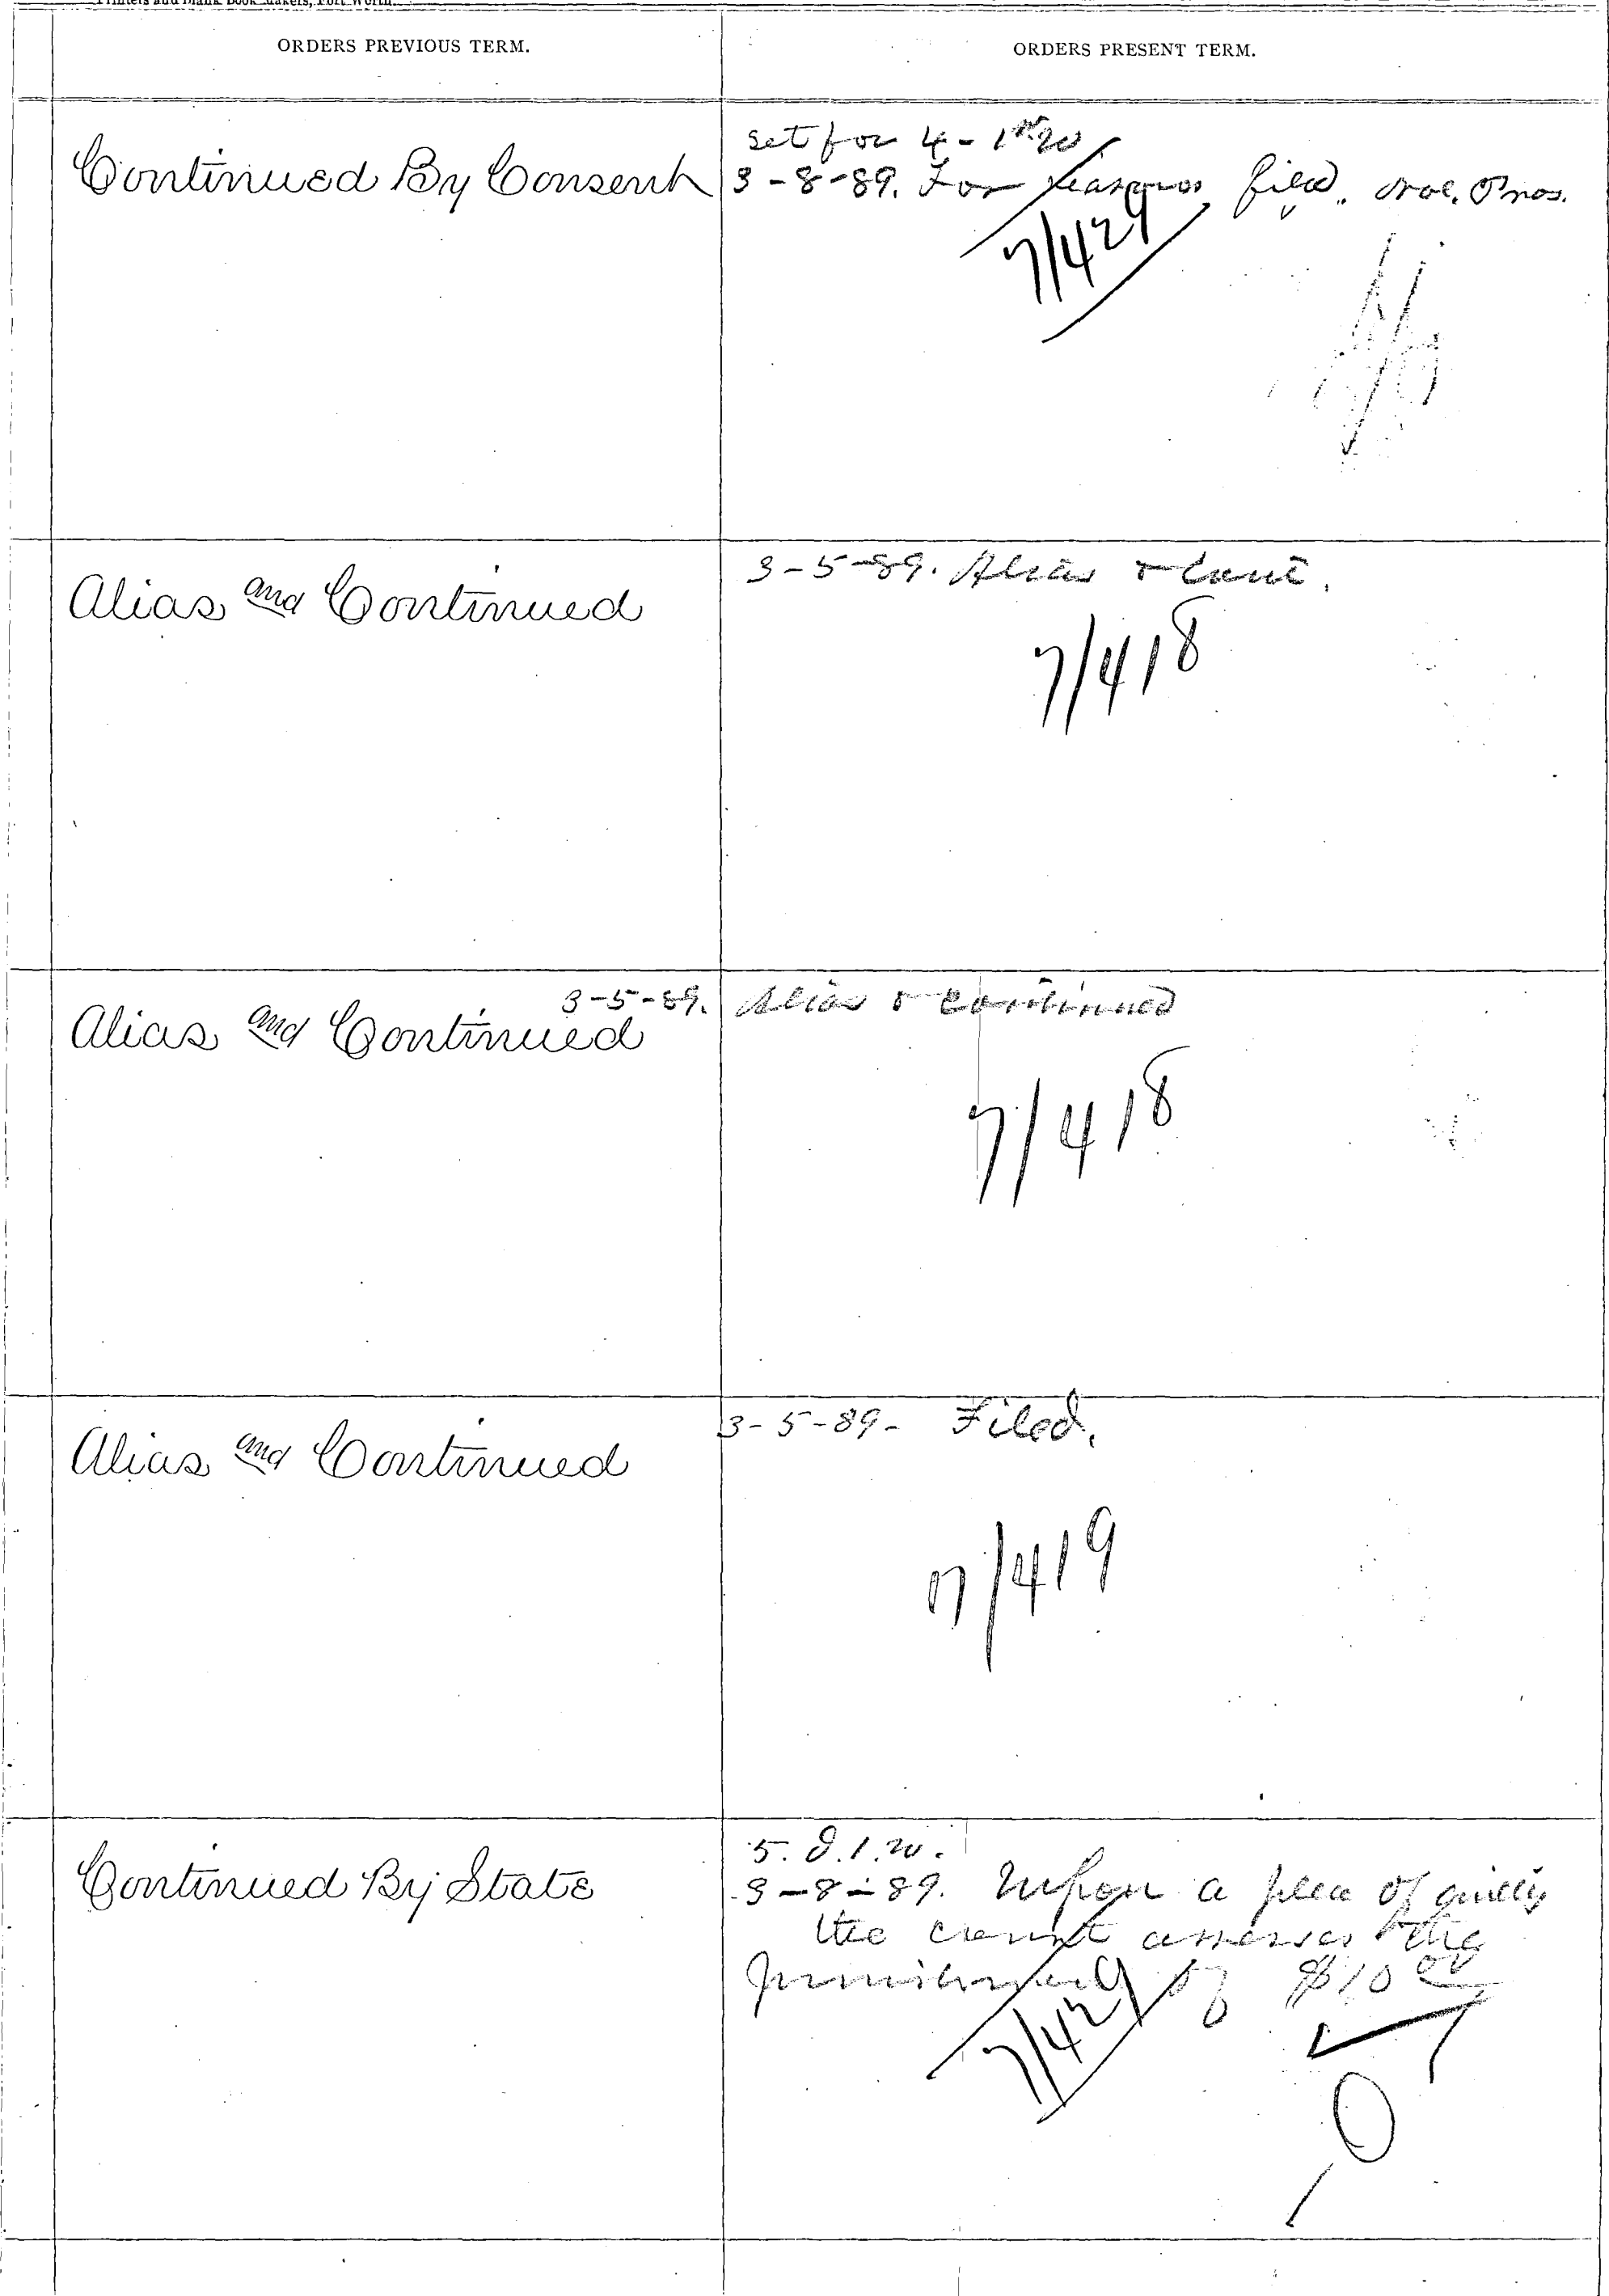 Printers and Blank Book Makers, Fort Worth.
ORDERS PREVIOUS TERM.
ORDERS PRESENT TERM.
set for 4 - 1st
Continued By Consent
3-8-89. For reasons filed. Nol. Pros.
7/429
Alias and Continued
3-5-89. Alias & Cont.
7/418
Alias and Continued
3-5-89. Alias & Continued
7/418
Alias and Continued
3-5-89- Filed.
7/419
Continued By State
5. d. 1. w.
3-8-89. Upon a plea of guilty
the court assesses the
punishment $10 00
7/429